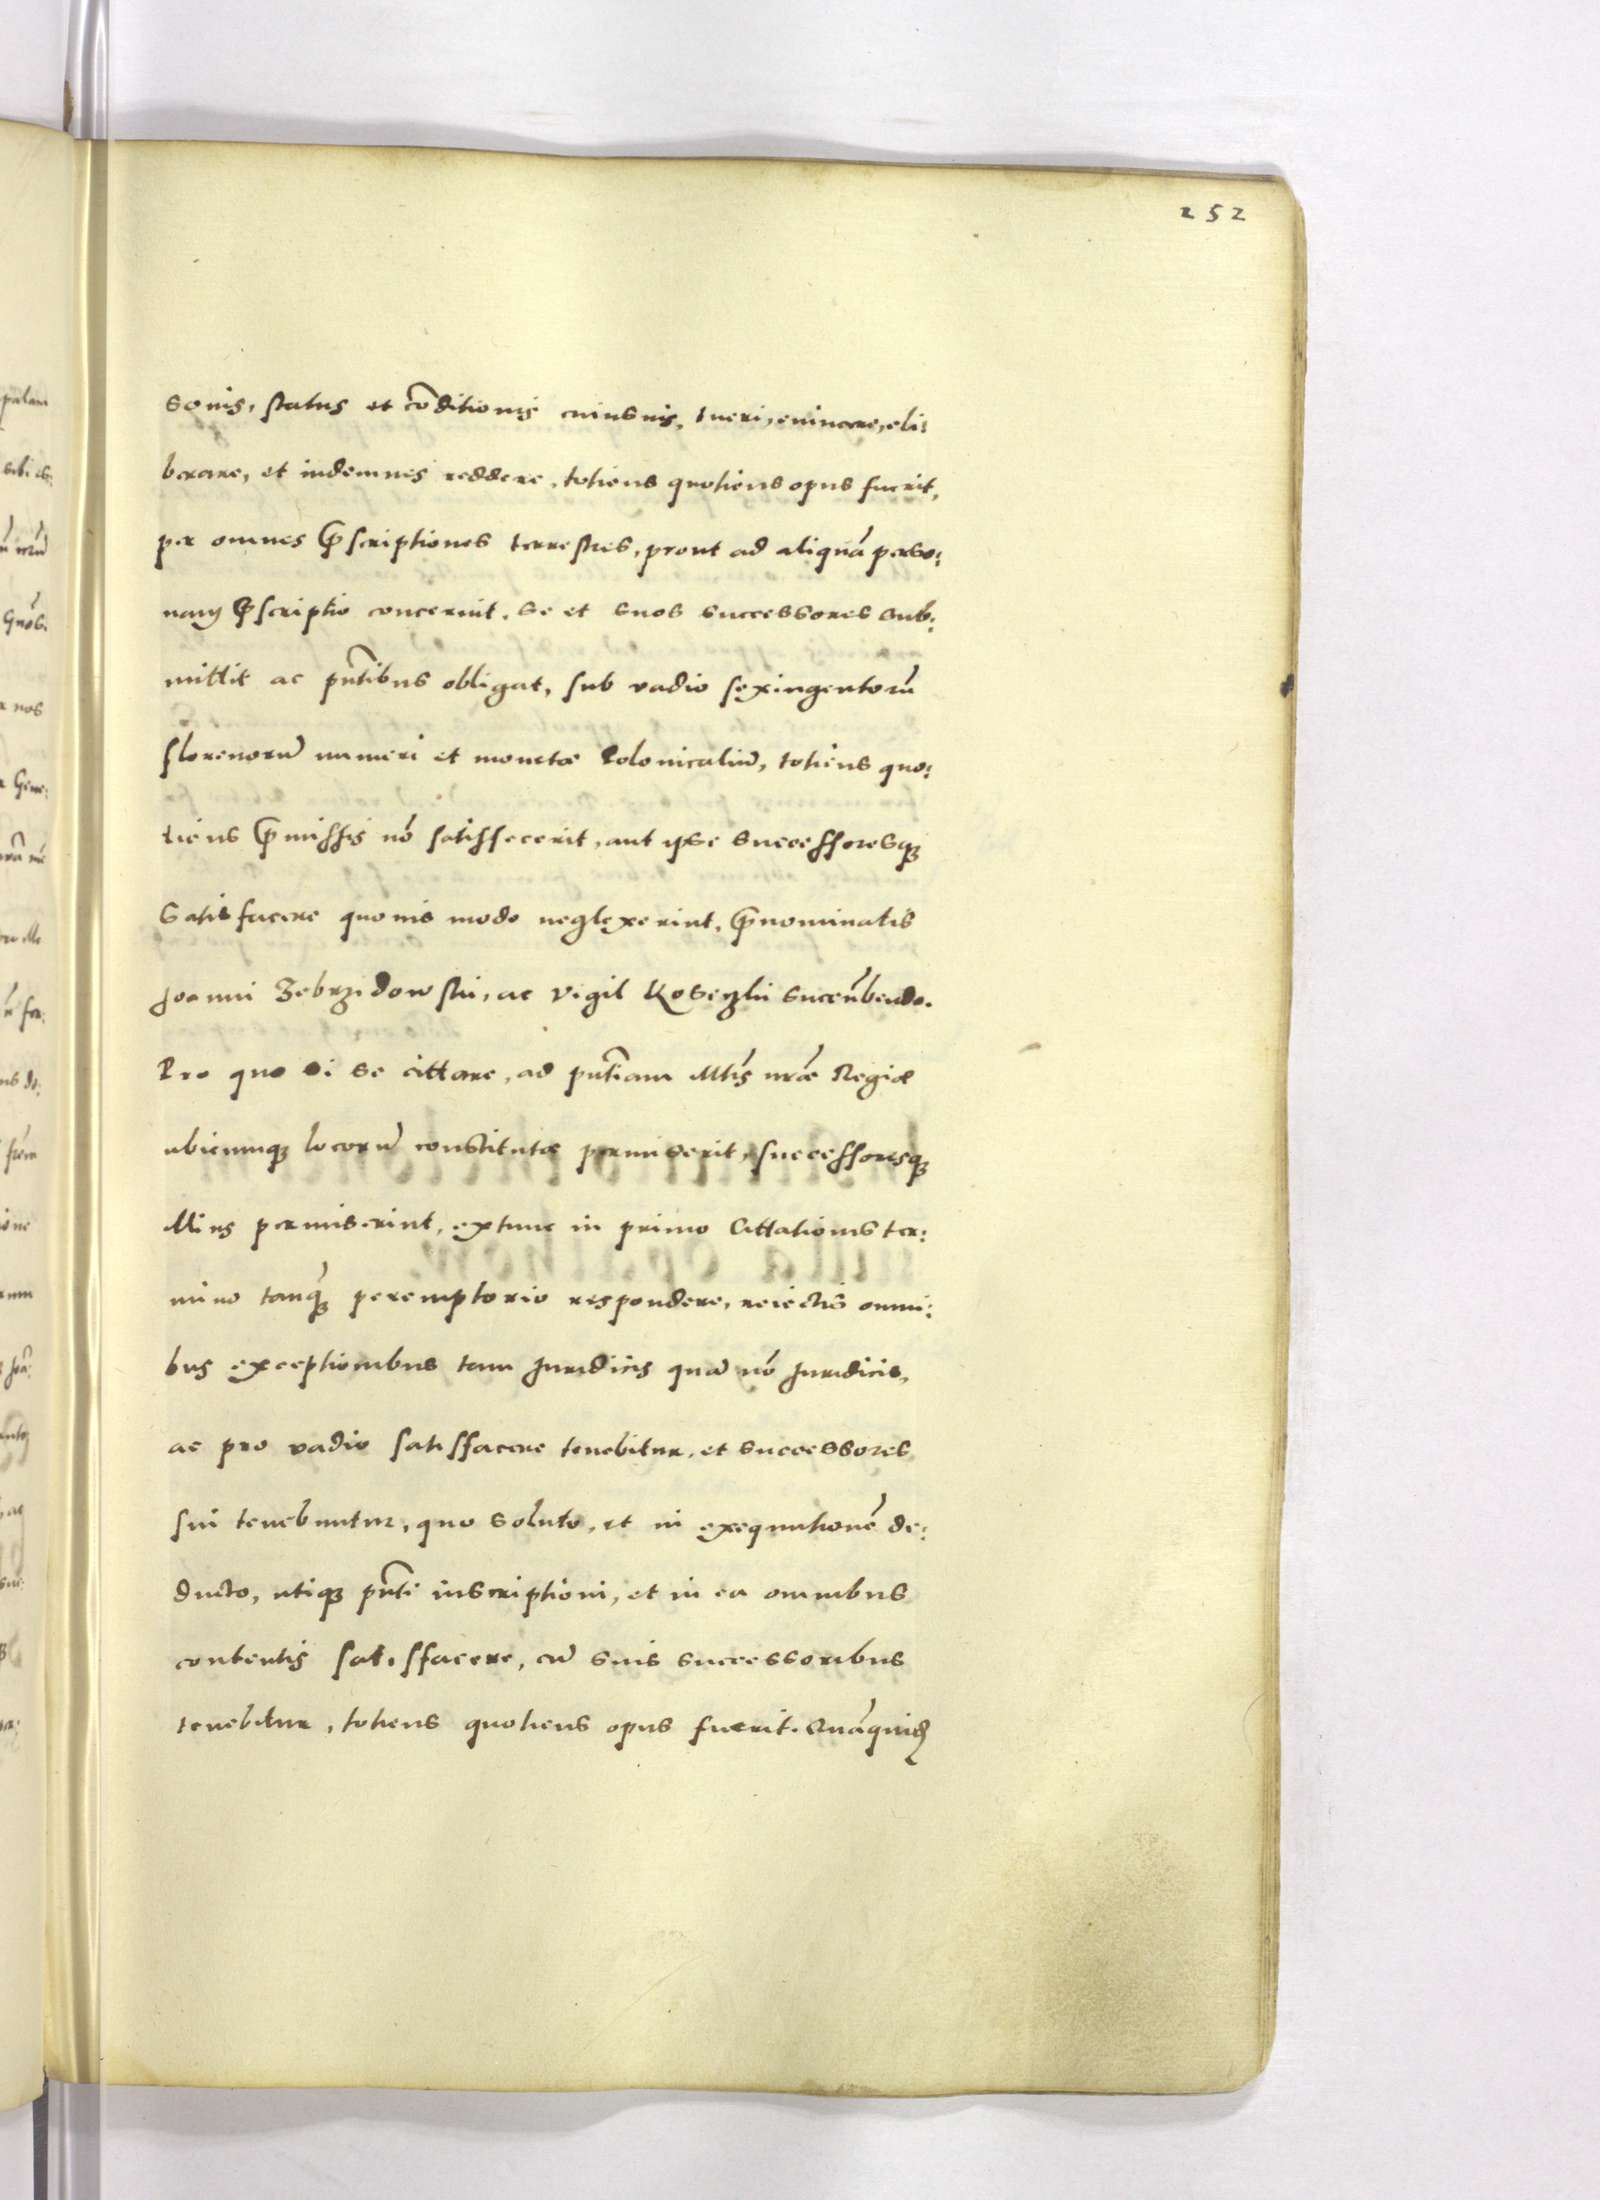 252
sonis, status et cõditionis cuiusuis, tueri, euincere, eli:
berare, et indemnes reddere, totiens quotiens opus fuerit,
per omnes p̃scriptiones terrestres, prout ad aliquã perso:
nam p̃scriptio concernit, se et suos successores sub:
mittit ac pñtibus obligat, sub vadio sexingentorũ
florenorũ numeri et monetæ Polonicaliũ, totiens quo:
tiens p̃missis nõ satisfecerit, aut ipse successoresqꝫ
satisfacere quouis modo neglexerint, p̃nominatis
Joanni Zebrzidowski, ac Vigil Koseczki succũbendo.
Pro quo si se cittare, ad pñtiam Mtis nr̃æ Regiæ
ubicunqꝫ locorũ constitutæ permiserit, successoresqꝫ
illius permiserint, extunc in primo Cittationis ter:
mino tanqꝫ̃ peremptorio respondere, reiectis omni:
bus exceptionibus tam Juridicis quã nõ Juridicis,
ac pro vadio satisfacere tenebitur, et successores
sui tenebuntur, quo soluto, et in exequutionẽ de:
ducto, utiqꝫ pñti inscriptioni, et in ea omnibus
contentis satisfacere, cũ suis successoribus
tenebitur, totiens quotiens opus fuerit. Quãquid